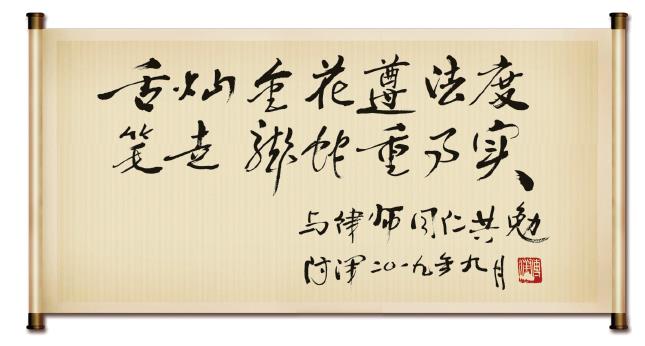 舌灿金花遵法度
笔走龙蛇重事实
与律师同仁共勉
阿浑二〇一九年九月